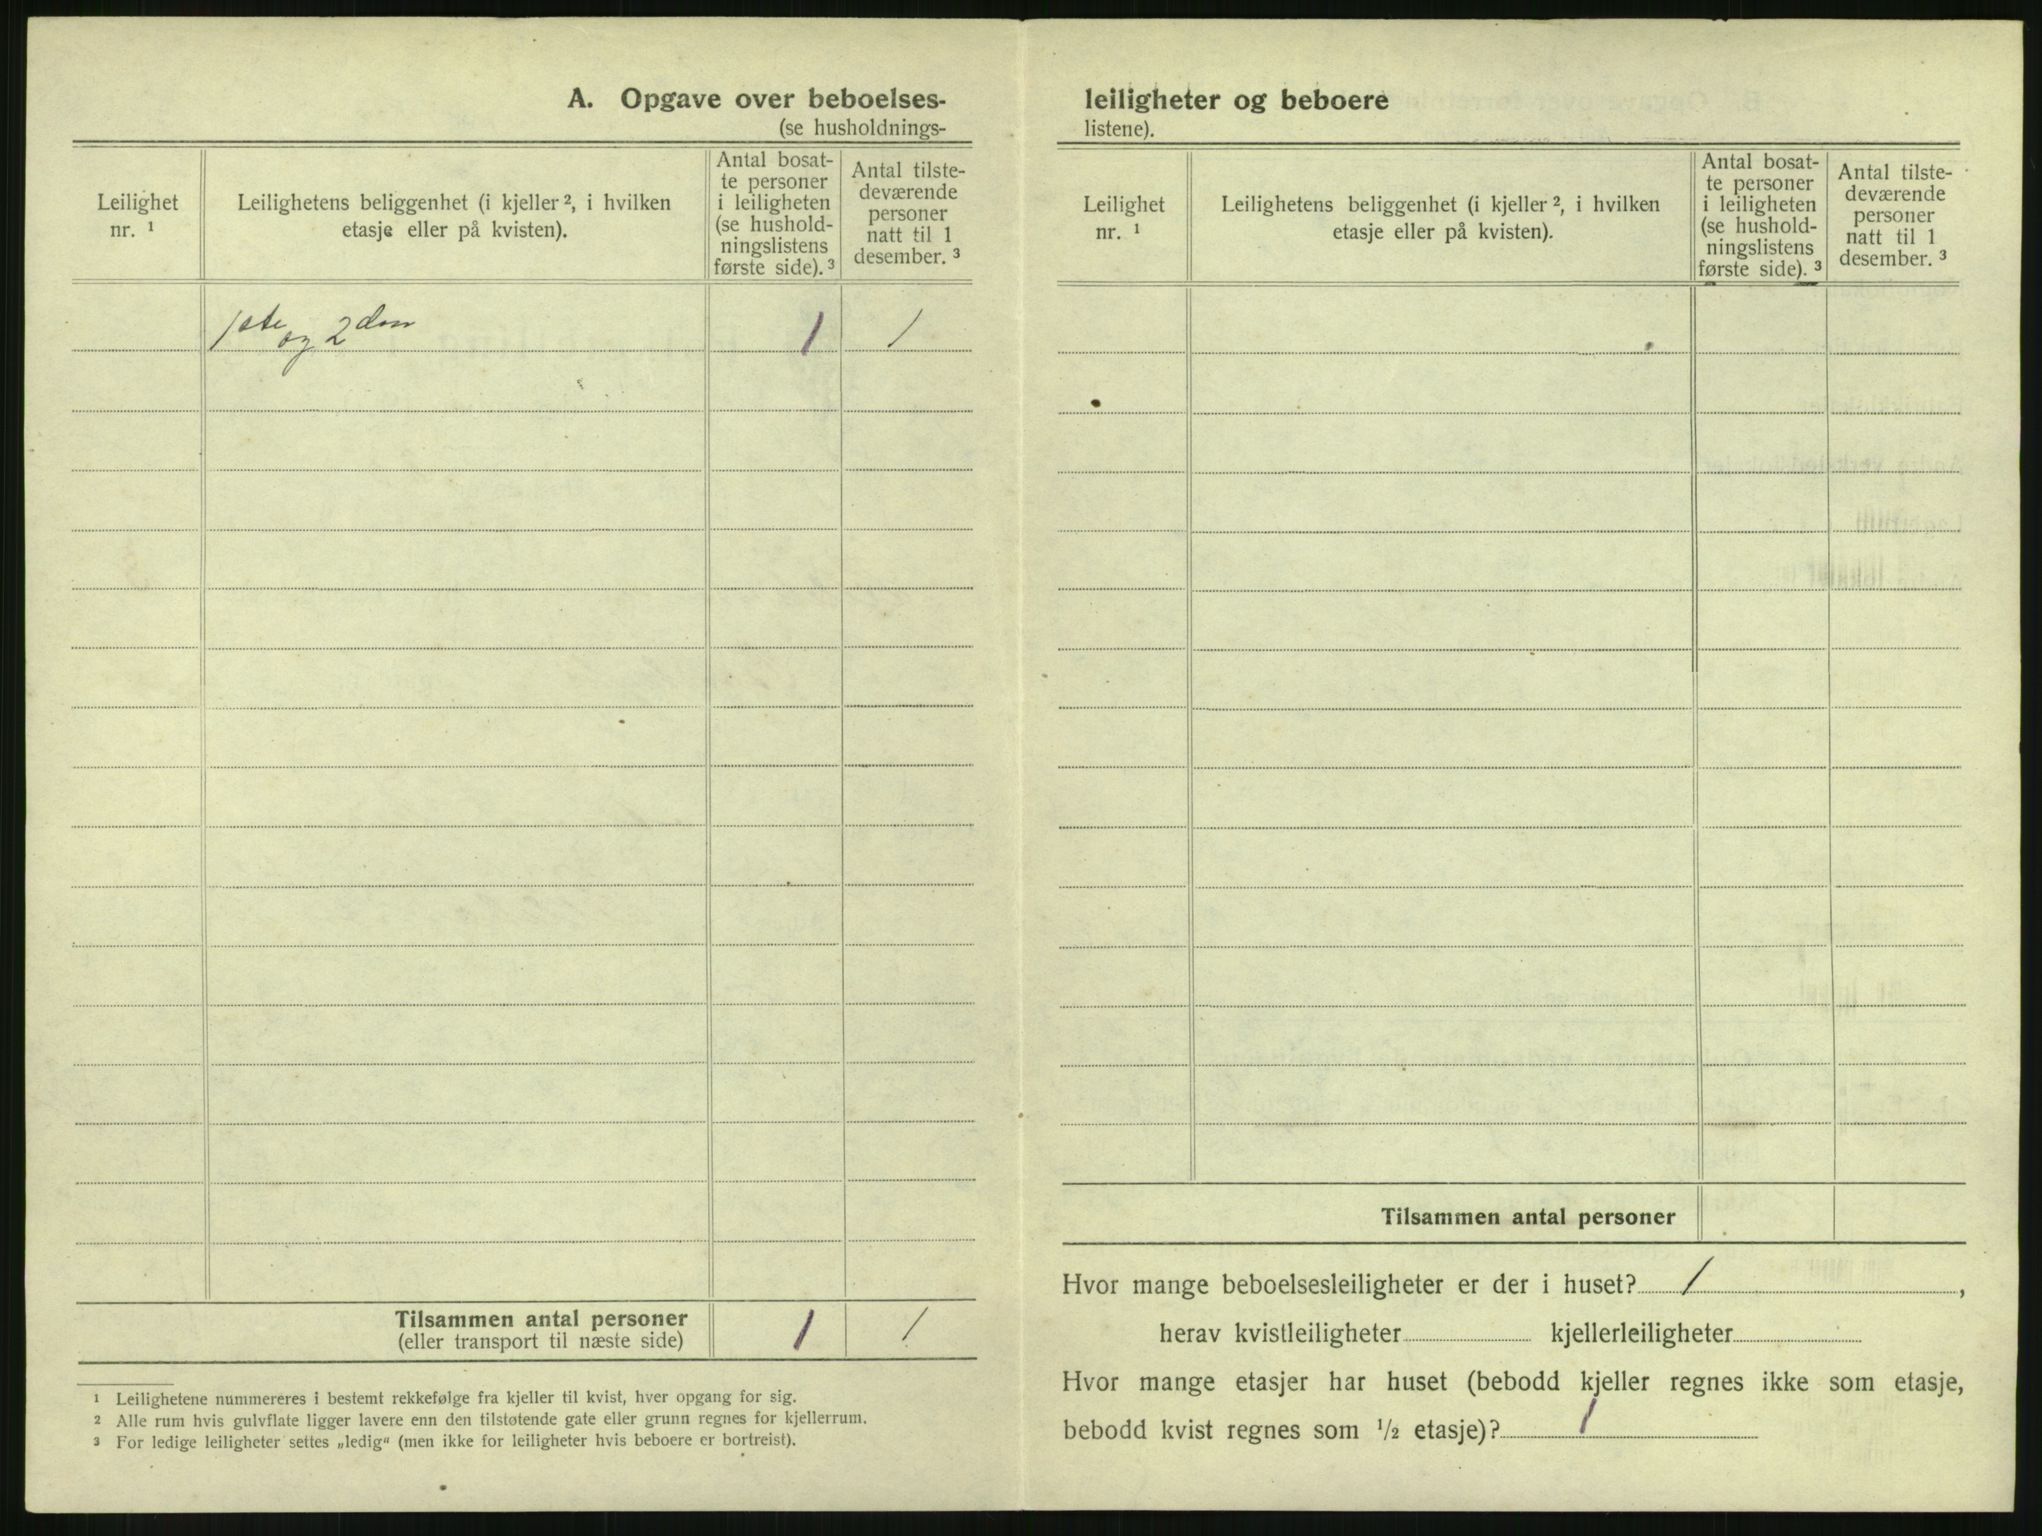 A. Opgave over beboelses-
(se husholdnings-
Leilighet
nr. 1
Leilighetens beliggenhet (i kjeller 2, i hvilken
etasje eller på kvisten).
Antal bosat-
te personer
i leiligheten
(se hushold-
ningslistens
første side). 3
Antal tilste-
deværende
personer
natt til 1
desember. 3
1ste og 2den 1 1
Tilsammen antal personer 1 1
(eller transport til næste side)
1 Leilighetene nummereres i bestemt rekkefølge fra kjeller til kvist, hver opgang for sig.
2 Alle rum hvis gulvflate ligger lavere enn den tilstøtende gate eller grunn regnes for kjellerrum.
3 For ledige leiligheter settes „ledig“ (men ikke for leiligheter hvis beboere er bortreist).
leiligheter og beboere
listene).
Leilighet
nr. 1
Leilighetens beliggenhet (i kjeller 2, i hvilken
etasje eller på kvisten).
Antal bosat-
te personer
i leiligheten
(se hushold-
ningslistens
første side). 3
Antal tilste-
deværende
personer
natt til 1
desember. 3
Tilsammen antal personer
Hvor mange beboelsesleiligheter er der i huset? 1 ,
herav kvistleiligheter kjellerleiligheter
Hvor mange etasjer har huset (bebodd kjeller regnes ikke som etasje,
bebodd kvist regnes som 1/2 etasje)? 1